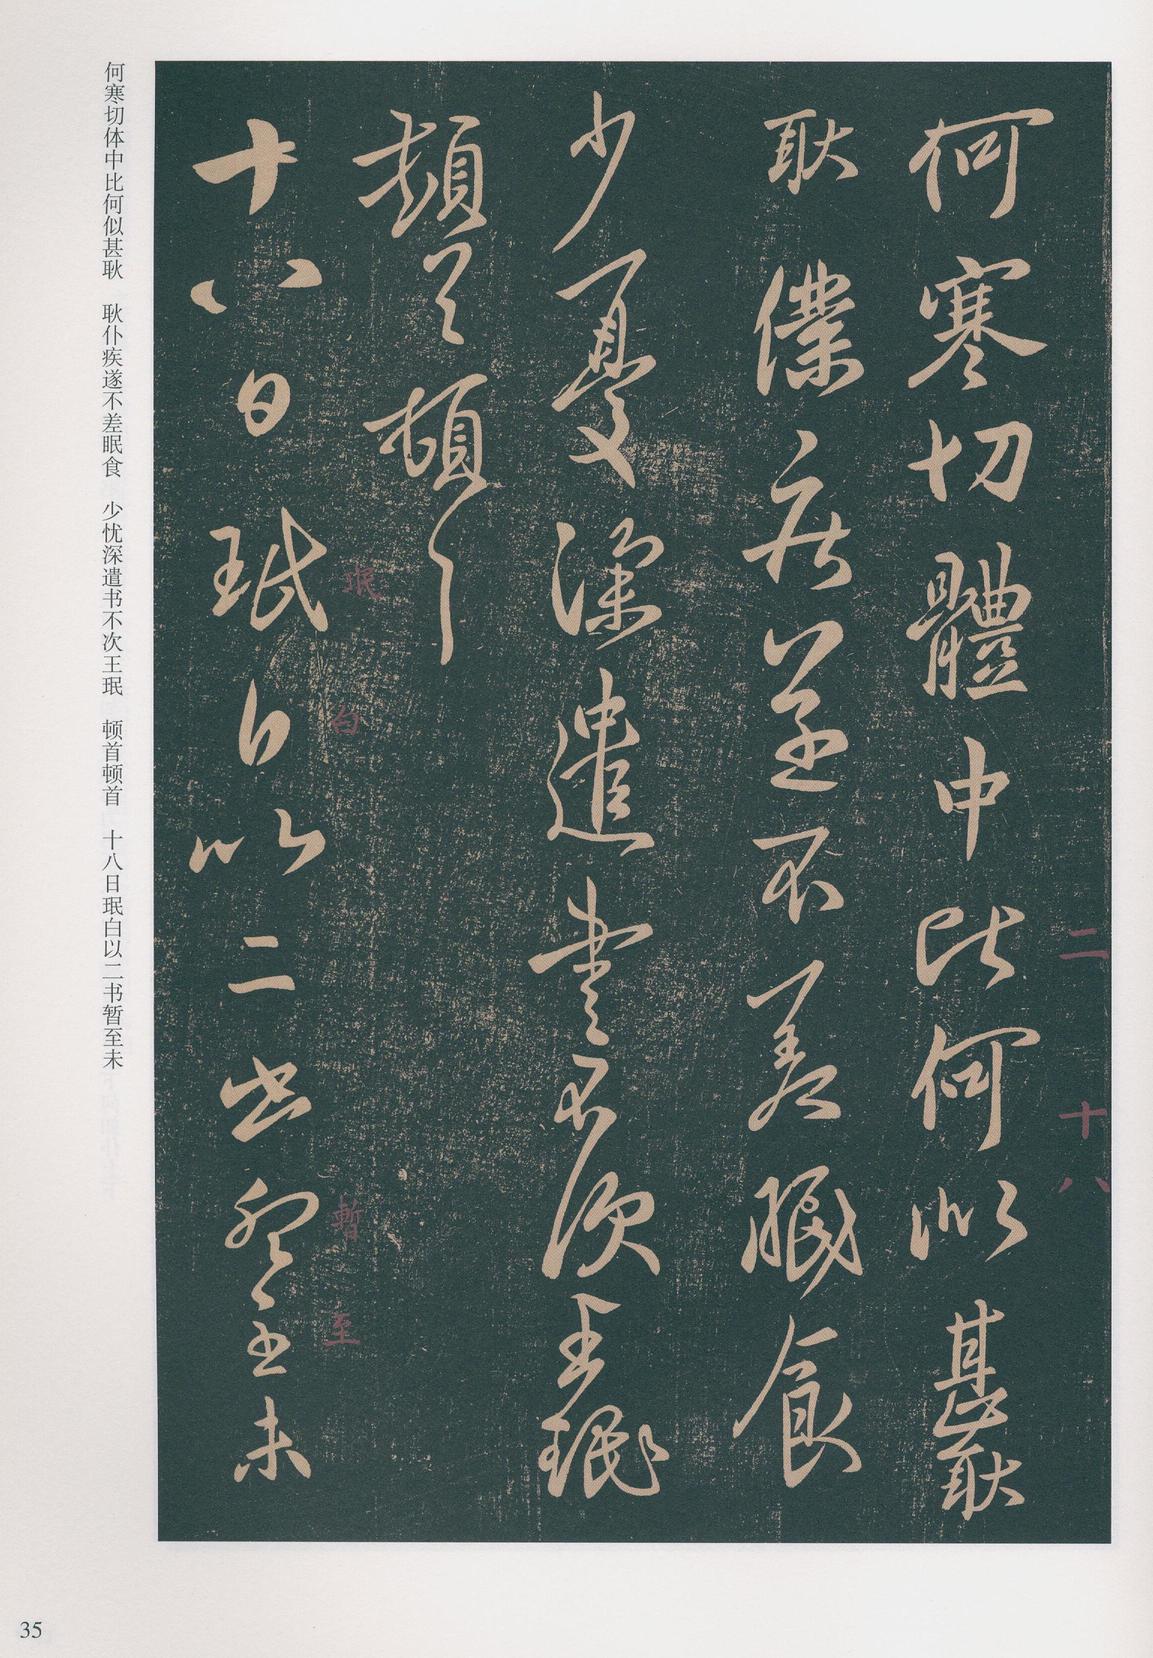 何寒切體中比何似甚耿
耿僕疾遂不差眠食
少憂深遣書不次王珉
頓首頓首
十八日珉白以二書暫至未
二十八
珉白暫至
何寒切体中比何似甚耿 耿仆疾遂不差眠食 少忧深遣书不次王珉 顿首顿首 十八日珉白以二书暂至未
35